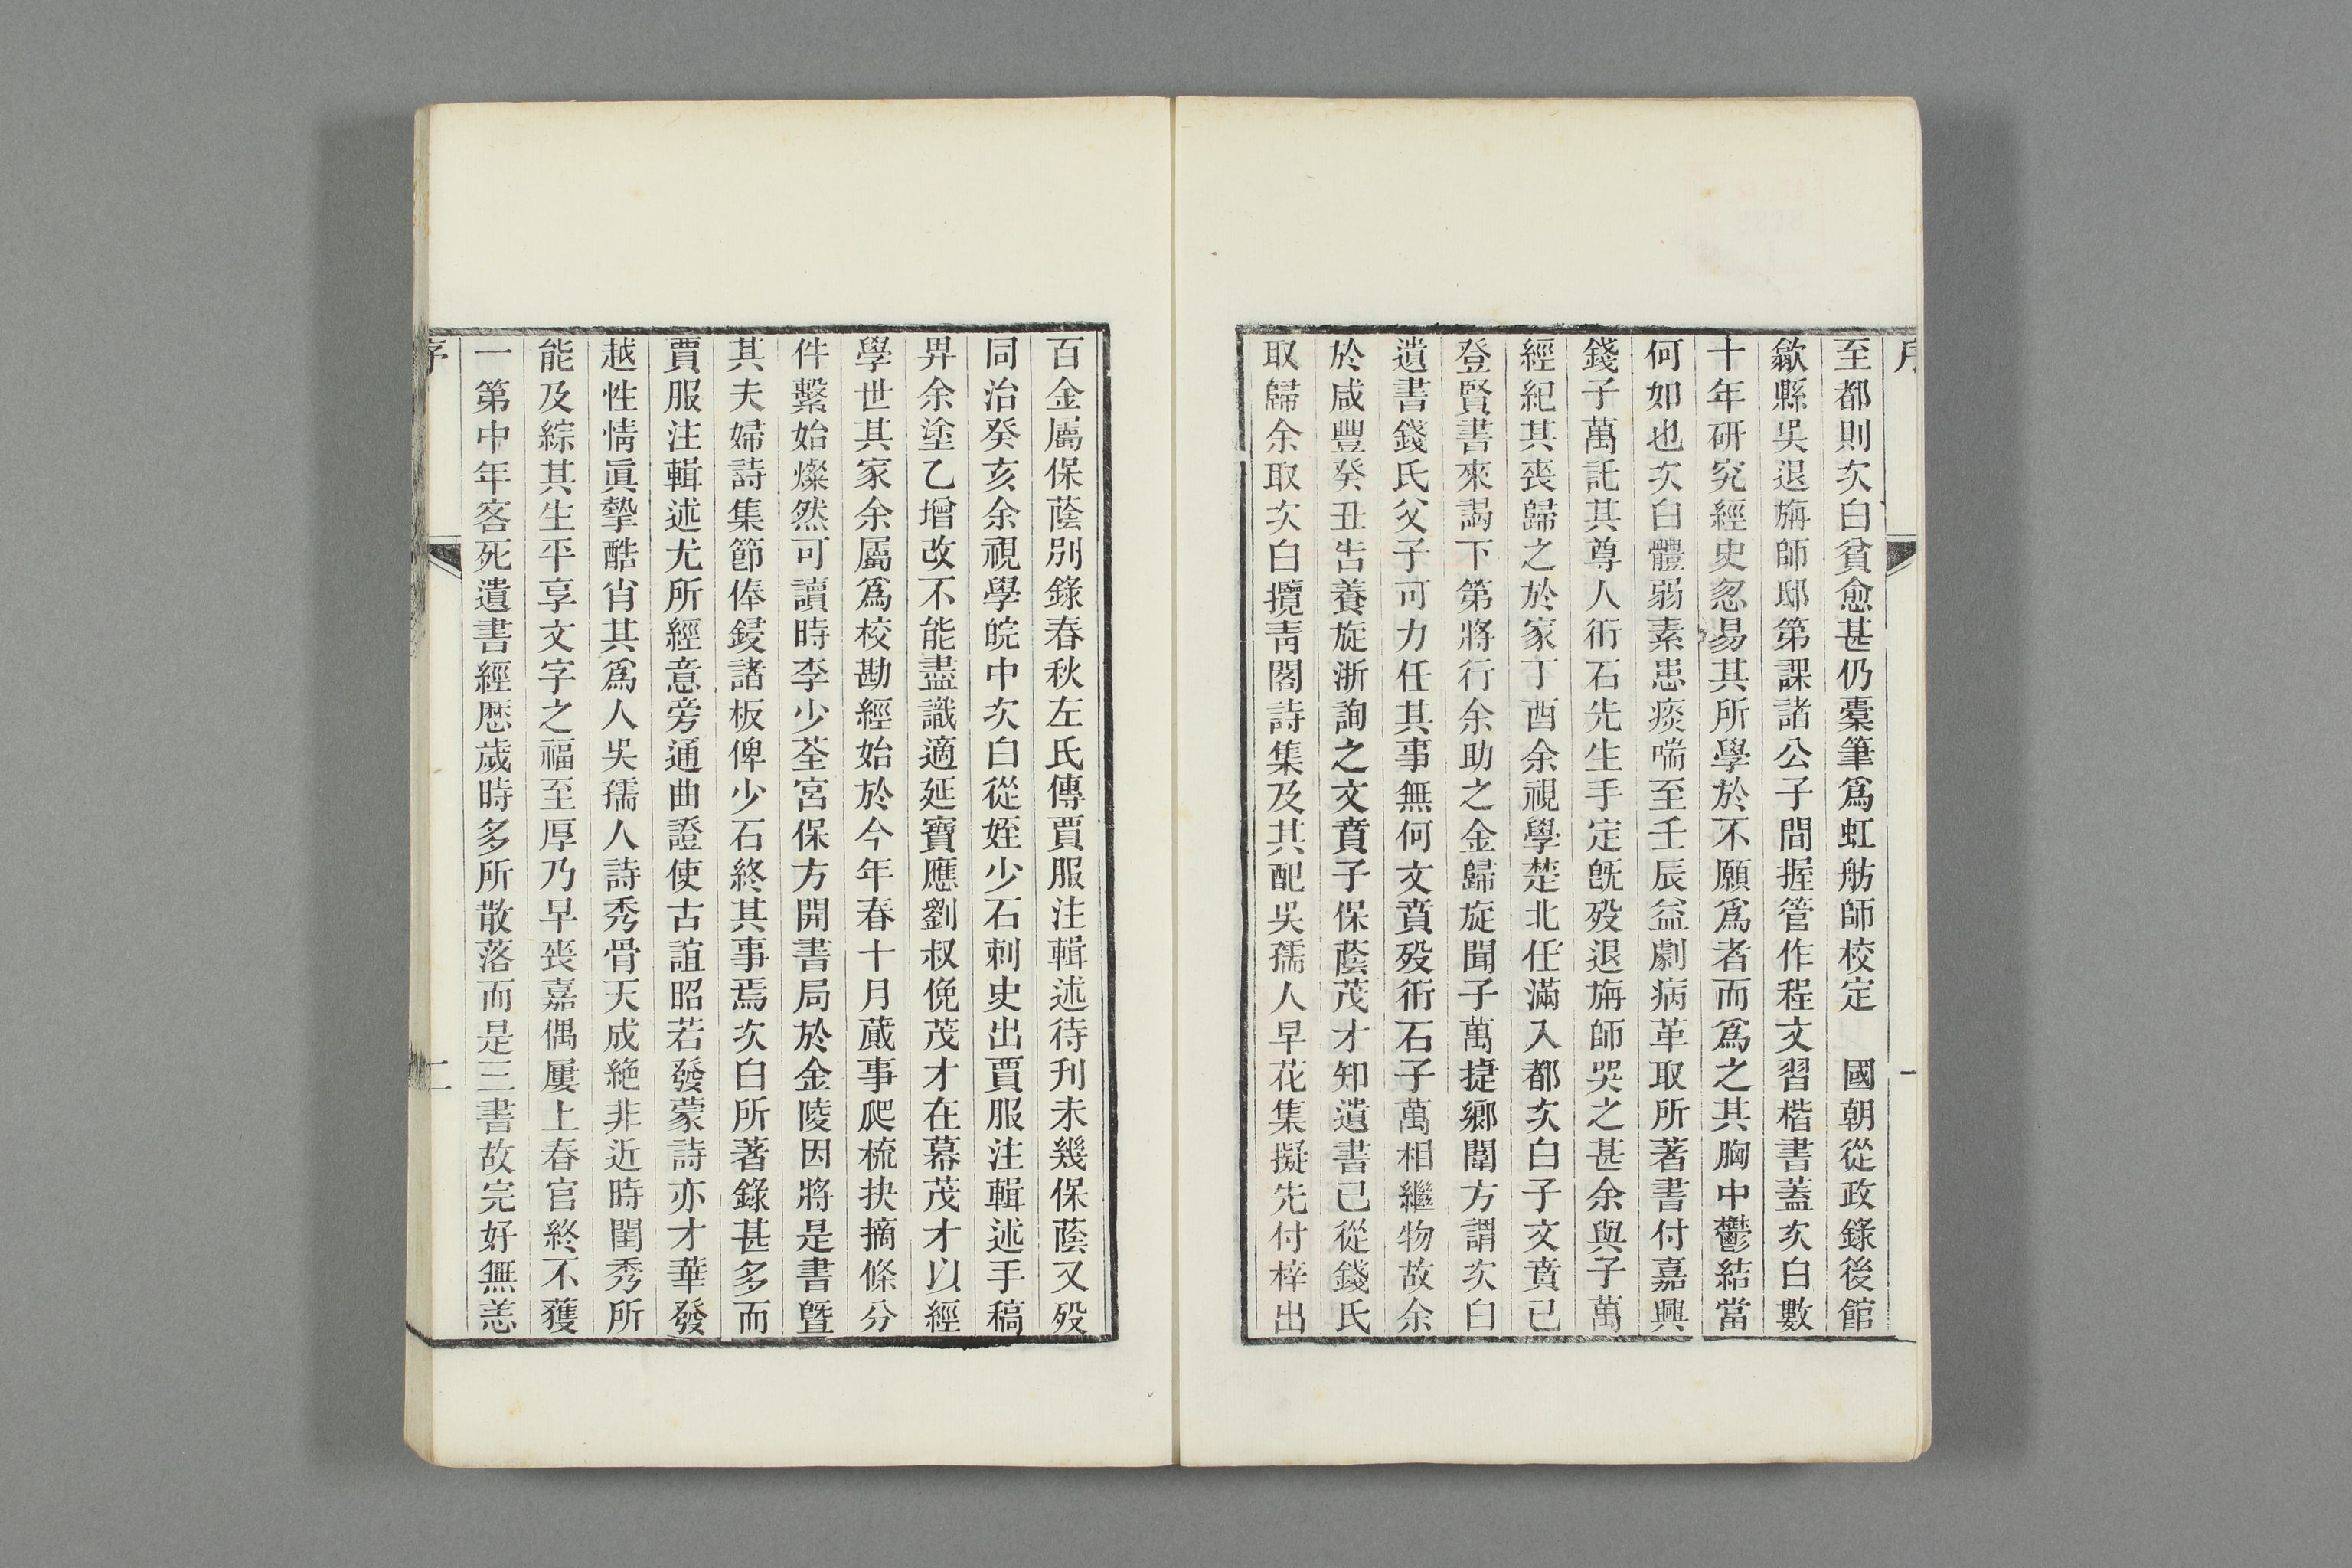 序
一
至都則次白貧愈甚仍橐筆爲虹舫師校定　國朝從政錄後館
歙縣吳退旃師邸第課諸公子間握管作程文習楷書蓋次白數
十年研究經史忽易其所學於不願爲者而爲之其胸中鬱結當
何如也次白體弱素患痰喘至壬辰益劇病革取所著書付嘉興
錢子萬託其尊人衎石先生手定旣歿退旃師哭之甚余與子萬
經紀其喪歸之於家丁酉余視學楚北任滿入都次白子文賁已
登賢書來謁下第將行余助之金歸旋聞子萬捷鄉闈方謂次白
遺書錢氏父子可力任其事無何文賁歿衎石子萬相繼物故余
於咸豐癸丑告養旋浙詢之文賁子保蔭茂才知遺書已從錢氏
取歸余取次白攬青閣詩集及其配吳孺人早花集擬先付梓出
百金屬保蔭別錄春秋左氏傳賈服注輯述待刊未幾保蔭又歿
同治癸亥余視學皖中次白從姪少石刺史出賈服注輯述手稿
畀余塗乙增改不能盡識適延寶應劉叔俛茂才在幕茂才以經
學世其家余屬爲校勘經始於今年春十月蕆事爬梳抉摘條分
件繫始燦然可讀時李少荃宮保方開書局於金陵因將是書曁
其夫婦詩集節俸鋟諸板俾少石終其事焉次白所著錄甚多而
賈服注輯述尤所經意旁通曲證使古誼昭若發蒙詩亦才華發
越性情眞摯酷肖其爲人吳孺人詩秀骨天成絶非近時閨秀所
能及綜其生平享文字之福至厚乃早喪嘉偶屢上春官終不獲
一第中年客死遺書經厯歲時多所散落而是三書故完好無恙
序
二